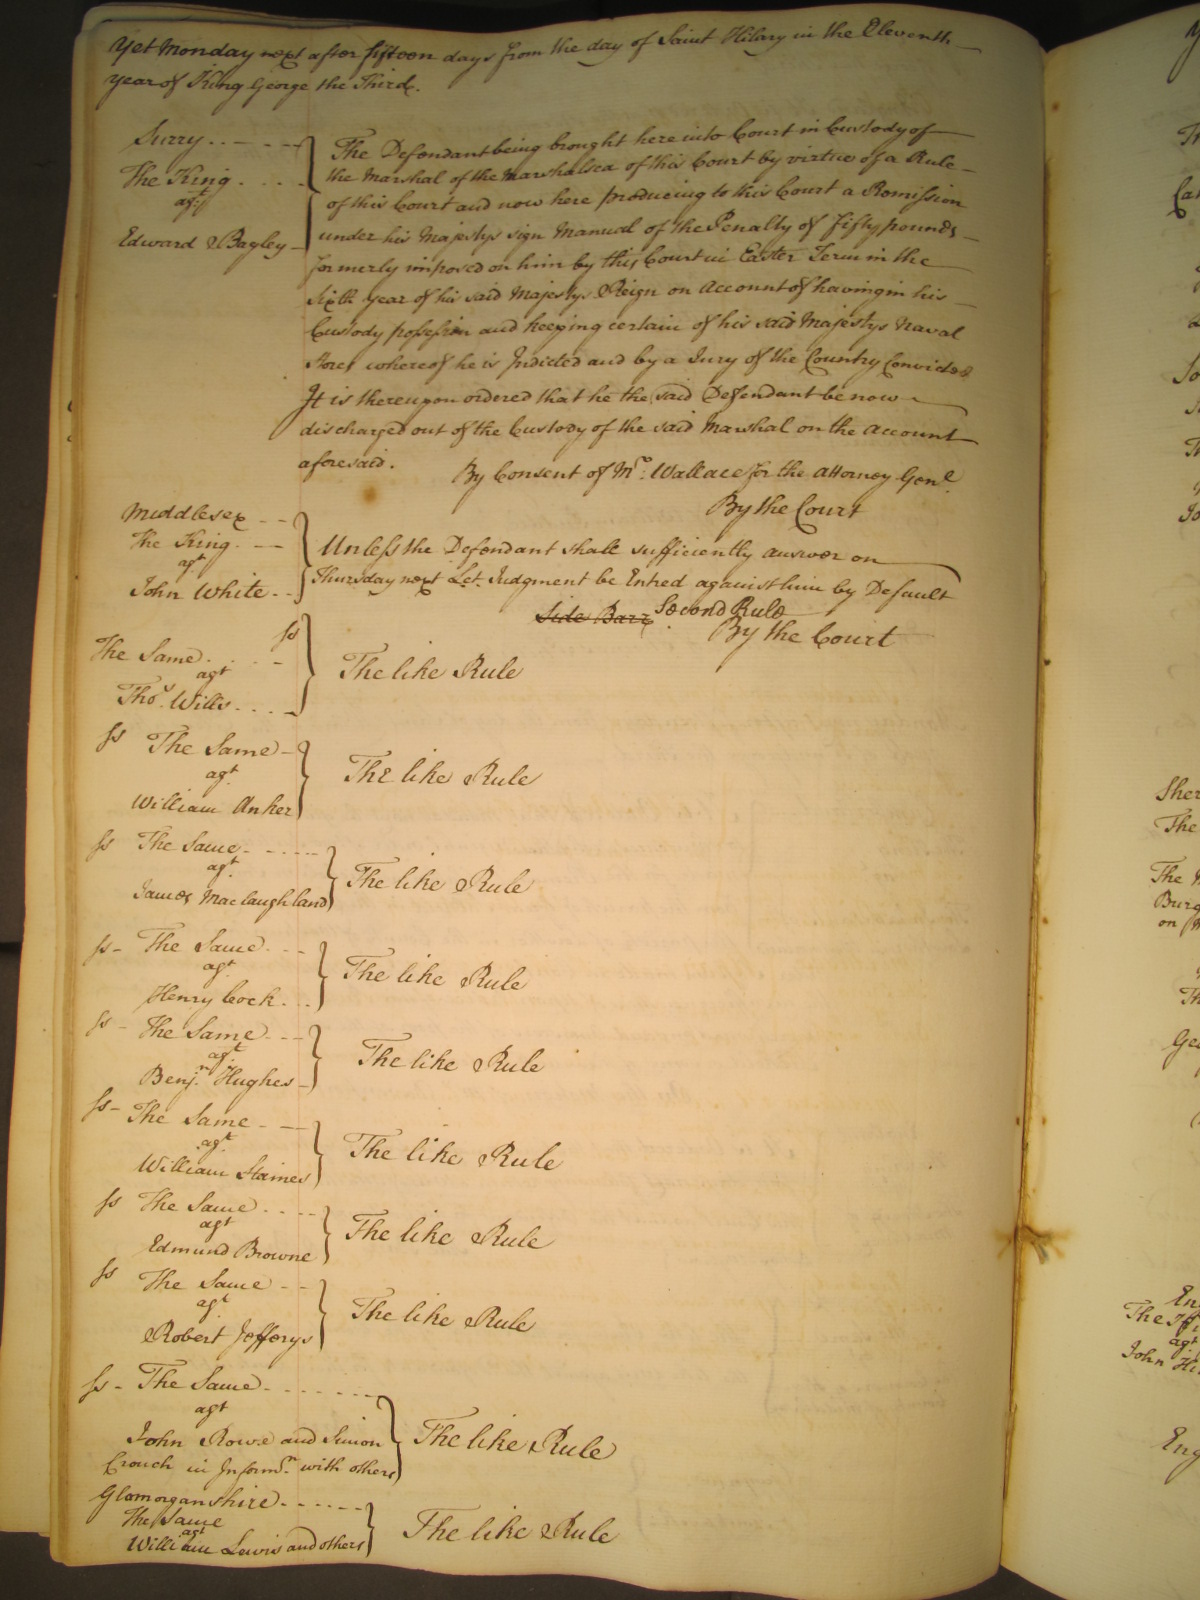 Yet Monday next after fifteen days from the day of Saint Hilary in the Eleventh
year of King George the Third.
Surry
The King
agt
Edward Bagley
The Defendant being brought here into Court in Custody of
the Marshal of the Marshalsea of this Court by virtue of a Rule
of this Court and now here producing to this Court a Remission
under his Majestys sign Manual of the Penalty of fifty pounds
formerly imposed on him by this Court in Easter Term in the
Sixth year of his said Majestys Reign on Account of having in his
Custody possession and keeping certain of his said Majestys Naval
Stores whereof he is Indicted and by a Jury of the Country Convicted
It is thereupon ordered that he the said Defendant be now
discharged out of the Custody of the said Marshal on the Account
aforesaid. By Consent of Mr. Wallace for the Attorney Genl.
By the Court
Middlesex
The King
agt
John White
Unless the Defendant shall sufficiently answer on
Thursday next Let Judgment be Entred against him by Default
Side Barr Second Rule
By the Court
ss
The Same
agt
Thos. Wills
The like Rule
ss The Same
agt.
William Anker
The like Rule
ss The Same
agt.
James Maclaughland
The like Rule
ss The Same
agt.
Henry Cock
The like Rule
ss The Same
agt.
Benjn. Hughes
The like Rule
ss The Same
agt
William Staines
The like Rule
ss The Same
agt
Edmund Browne
The like Rule
ss The Same
agt
Robert Jefferys
The like Rule
ss The Same
agt
John Rowe and Simon
Crouch in Informn. with others
The like Rule
Glamorganshire
The Same
agt
William Lewis and others
The like Rule
Sher
The
The
Burg
on
Geo
En
The
agt
John Hi
Eng